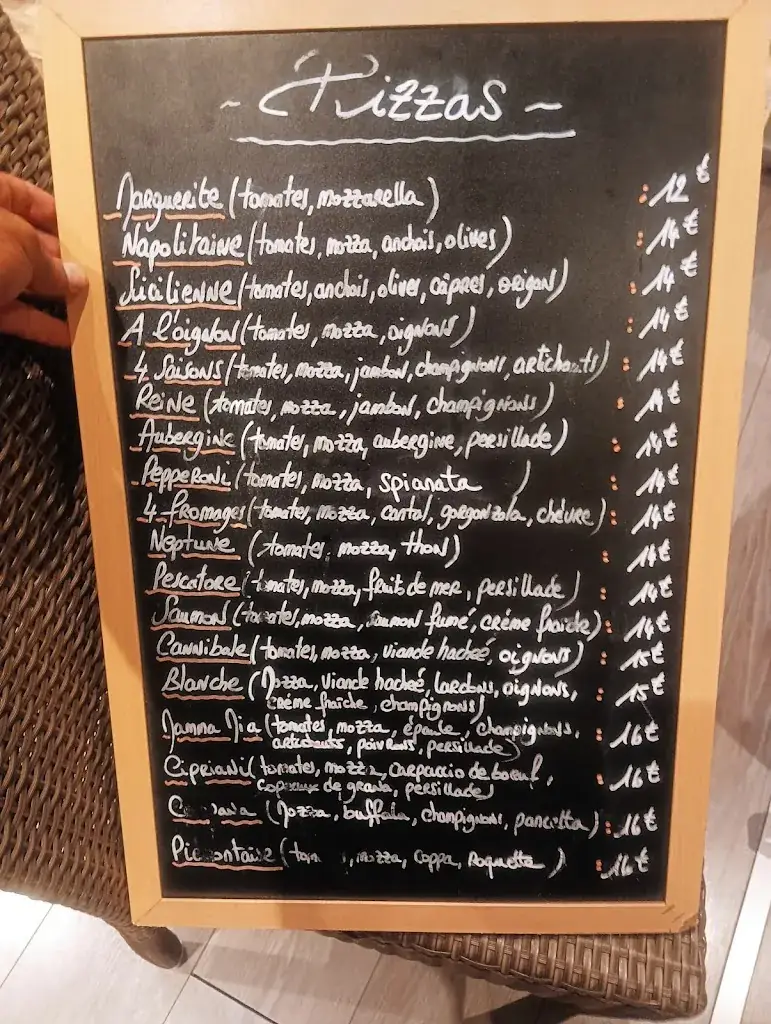 ~ Pizzas ~
Marguerite (tomates, mozzarella) : 12€
Napolitaine (tomates, mozza, anchois, olives) : 14€
Sicilienne (tomates, anchois, olives, câpres, origan) : 14€
A l'oignon (tomates, mozza, oignons) : 14€
4 Saisons (tomates, mozza, jambon, champignons, artichauts) : 14€
Reine (tomates, mozza, jambon, champignons) : 14€
Aubergine (tomates, mozza, aubergine, persillade) : 14€
Pepperoni (tomates, mozza, spianata) : 14€
4 fromages (tomates, mozza, cantal, gorgonzola, chèvre) : 14€
Neptune (tomates, mozza, thon) : 14€
Pescatore (tomates, mozza, fruit de mer, persillade) : 14€
Saumon (tomates, mozza, saumon fumé, crème fraîche) : 14€
Cannibale (tomates, mozza, viande hachée, oignons) : 15€
Blanche (Mozza, viande hachée, lardons, oignons, : 15€
crème fraîche, champignons)
Mamma Mia (tomates, mozza, épaule, champignons, : 16€
artichauts, poivrons, persillade)
Cipriani (tomates, mozza, carpaccio de boeuf, : 16€
copeaux de grana, persillade)
(Mozza, buffala, champignons, pancetta) : 16€
Piémontaise (mozza, coppa, Roquette) : 16€